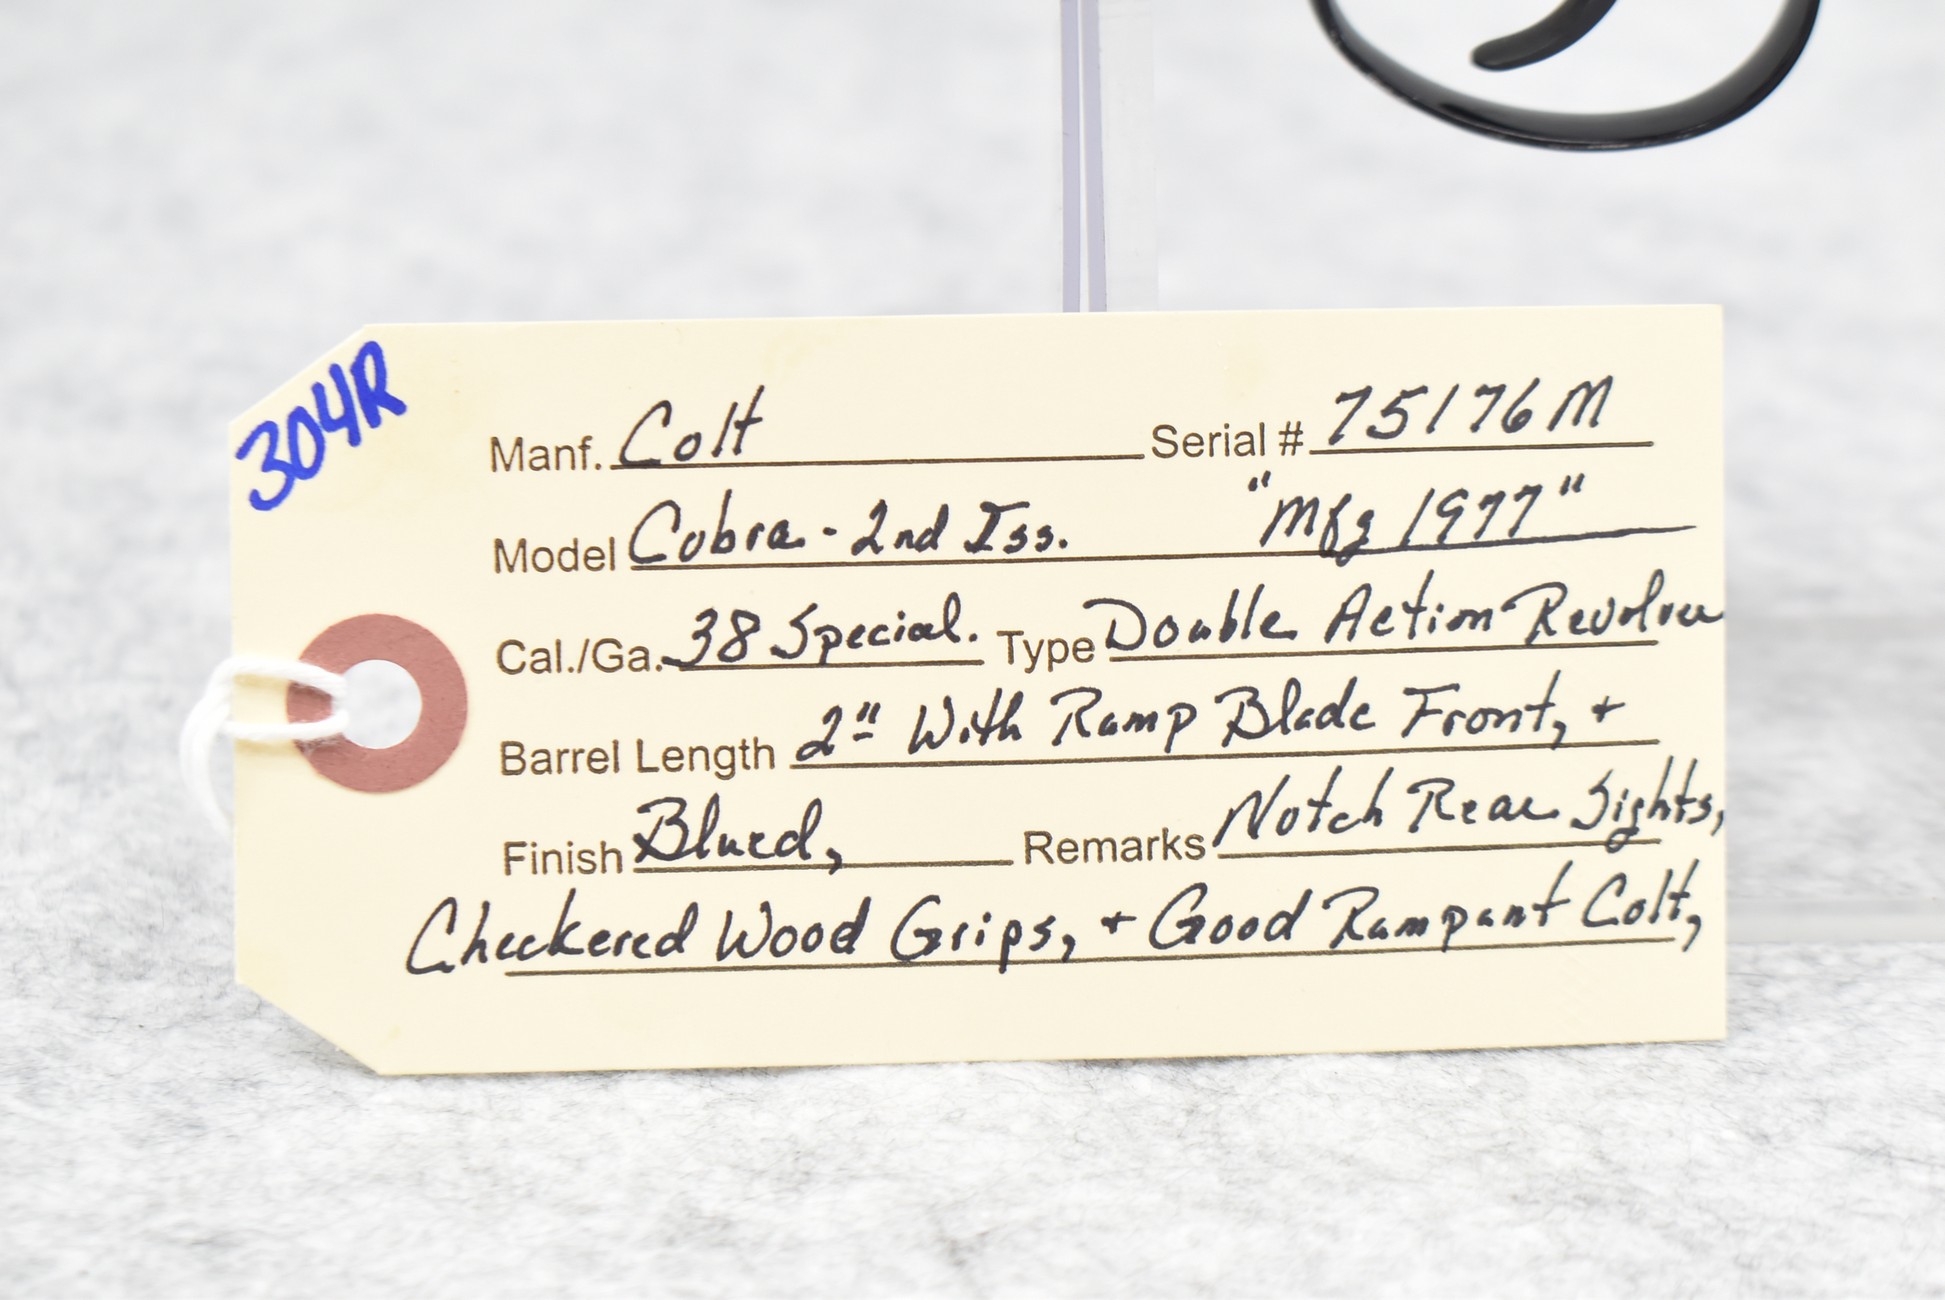 304R
Manf. Colt Serial # 75176M
Model Cobra - 2nd Iss. "Mfg 1977"
Cal./Ga. 38 Special. Type Double Action Revolver
Barrel Length 2" With Ramp Blade Front, +
Finish Blued, Remarks Notch Rear Sights,
Checkered Wood Grips, + Good Rampant Colt,